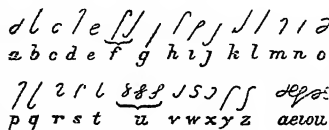 a b c d e f g h i j k l m n o
p q r s t u v w x y z aeiou